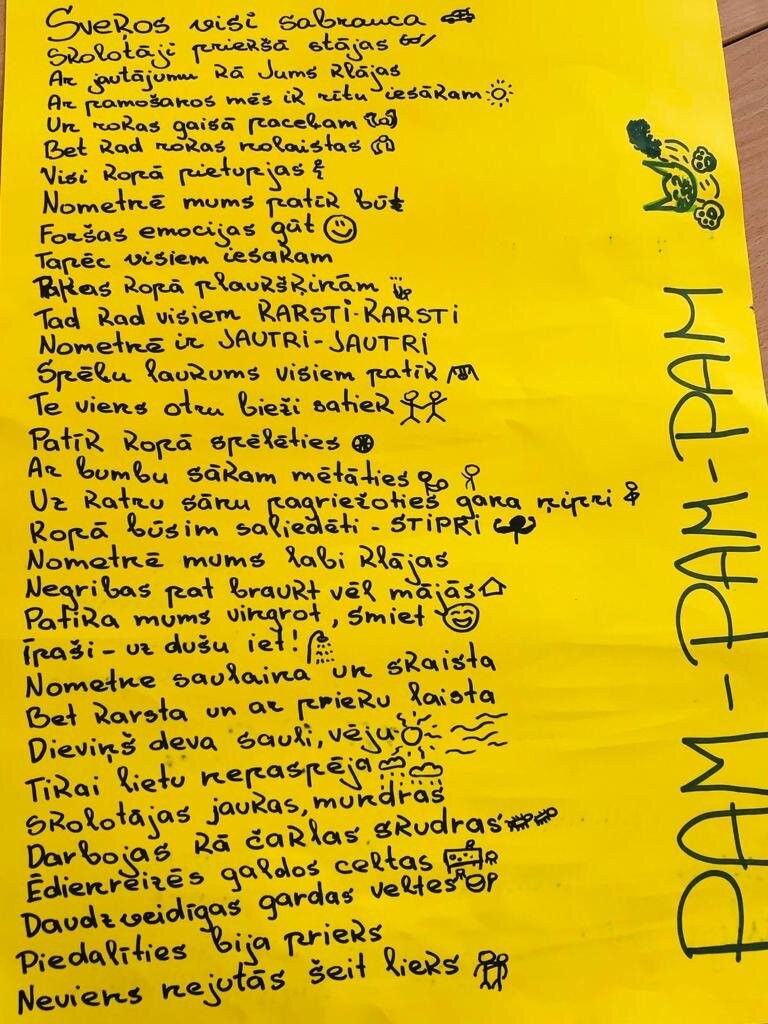 Sveķos visi sabrauca
Skolotāji priekšā stājas
Ar jautājumu kā Jums klājas
Ar pamošanos mēs ik rītu iesākam
Un rokas gaisā paceļam
Bet kad rokas nolaistas
Visi kopā pietupjas
Nometnē mums patīk būt
Foršas emocijas gūt
Tapēc visiem iesakam
Pakas kopā plaukšķinām
Tad kad visiem KARSTI-KARSTI
Nometnē ir JAUTRI-JAUTRI
Spēļu laukums visiem patīk
Te viens otru bieži satiek
Patīk kopā spēlēties
Ar bumbu sākam mētāties
Uz katru sānu pagriežoties gana ņipri
Kopā būsim saliedēti - STIPRI
Nometnē mums labi klājas
Negribas pat braukt vēl mājās
Patika mums vingrot, smiet
Īpaši - uz dušu iet!
Nometne saulaina un skaista
Bet karsta un ar prieku laista
Dieviņš deva sauli, vēju
Tikai lietu nepaspēja
Skolotājas jaukas, mundras
Darbojas kā čaklas skudras
Ēdienreizēs galdos celtas
Daudzveidīgas gardas veltes
Piedalīties bija prieks
Neviens nejutās šeit lieks
PAM-PAM-PAM